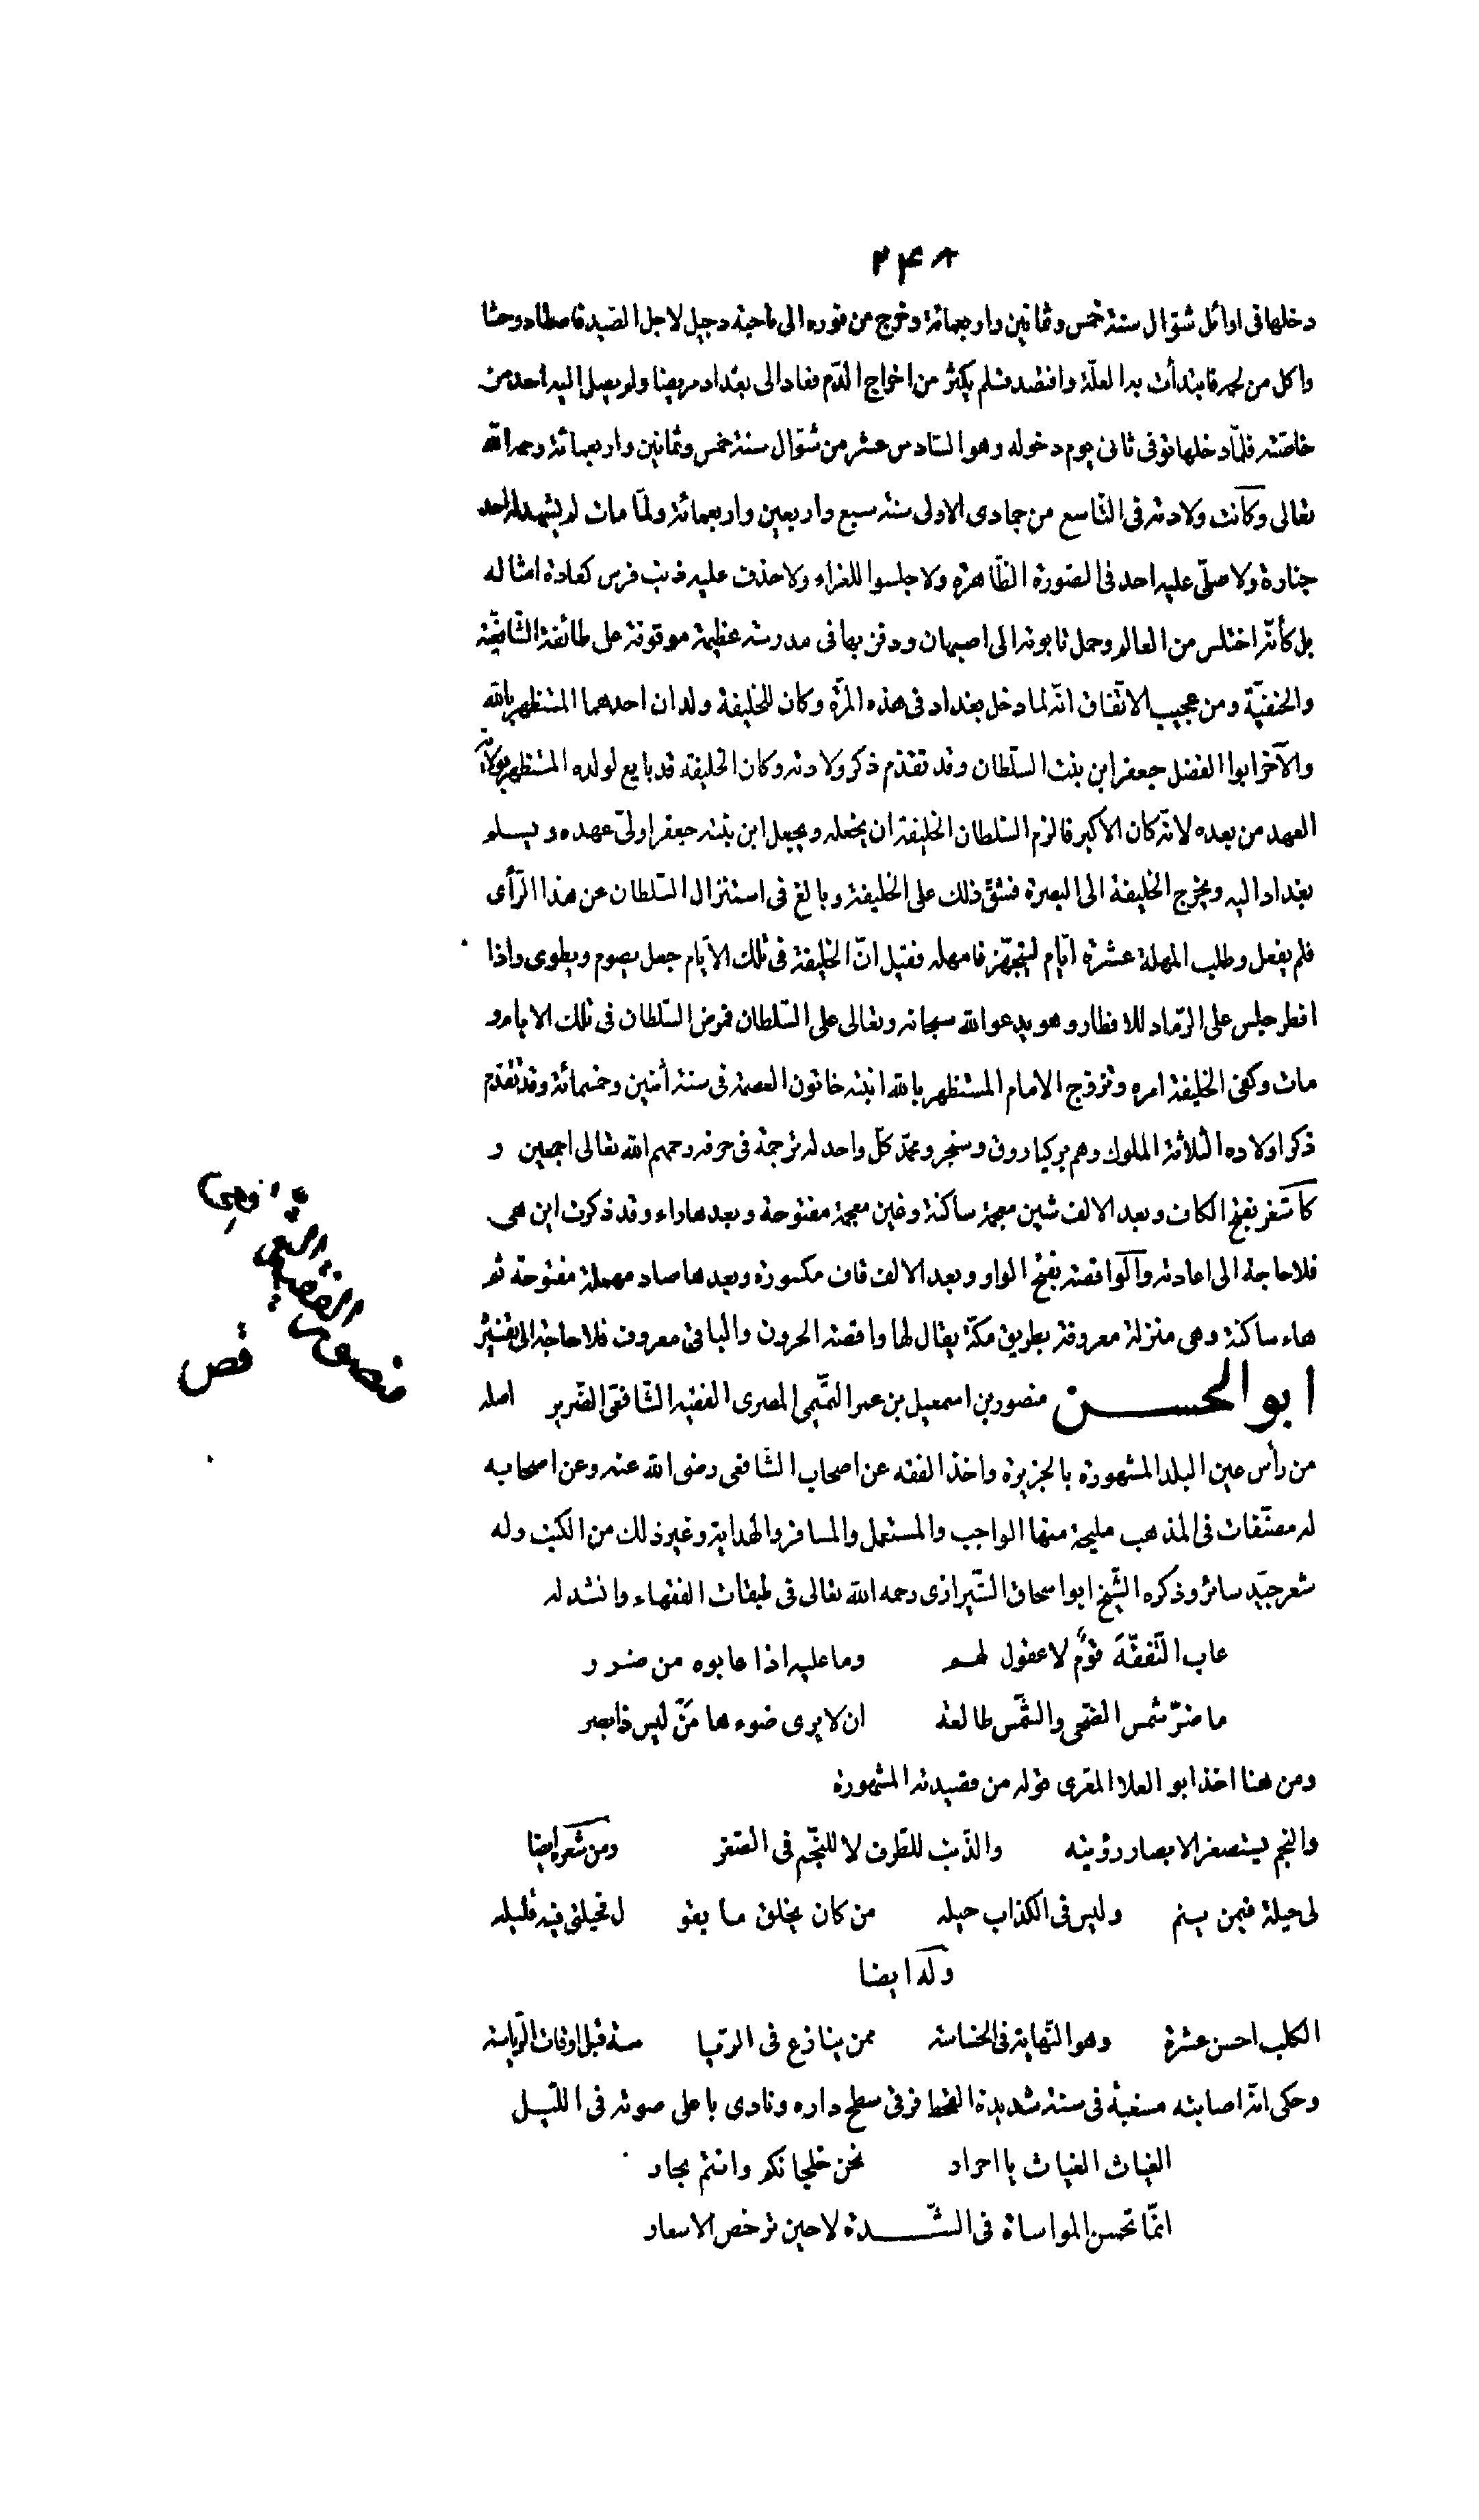 ٢٤٨
دخلها فى اوائل شوّال سنة خمس وثمانين واربعمائة وخرج من فوره الى ناحية دجيل لاجل الصّيد فاصطاد وحشا
واكل من لحمه فابتدأت به العلّة وافتصد فلم يكثر من اخراج الدّم فعاد الى بغداد مريضا ولم يصل اليه احد من
خاصّته فلمّا دخلها توفى ثانى يوم دخوله وهو السّادس عشر من شوّال سنة خمس وثمانين واربعمائة رحمه الله
تعالى وكانت ولادته فى التّاسع من جمادى الاولى سنة سبع واربعين واربعمائة ولمّا مات لم يشهد له احد
جنازة ولا صلّى عليه احد فى الصّورة الظّاهرة ولا جلسوا للعزاء ولا حذف عليه ذنب فرس كعادة امثاله
بل كأنّه اختلس من العالم وحمل تابوته الى اصبهان ودفن بها فى مدرسة عظيمة موقوفة على طائفة الشّافعيّة
والحنفيّة ومن عجيب الاتّفاق انّه لما دخل بغداد فى هذه المرّة وكان للخليفة ولدان احدهما المستظهر بالله
والآخر ابوا الفضل جعفر ابن بنت السّلطان وقد تقدّم ذكر ولادته وكان الخليفة قد بايع لولده المستظهر بولاية
العهد من بعده لانّه كان الاكبر فالزم السّلطان الخليفة ان يخلعه ويجعل ابن بنته جعفرا ولىّ عهده ويسلم
بغداد اليه ويخرج الخليفة الى البصرة فشقّ ذلك على الخليفة وبالغ فى استنزال السّلطان عن هذا الرّأى
فلم يفعل وطلب المهلة عشرة ايّام ليتجهّز فامهله فقيل انّ الخليفة فى تلك الايّام جعل يصوم ويطوى واذا
افطر جلس على الرّماد للافطار وهو يدعو الله سبحانه وتعالى على السّلطان فمرض السّلطان فى تلك الايام و
مات وكفى الخليفة امره وتزوّج الامام المستظهر بالله ابنته خاتون العصمة فى سنة أثنين وخمسمائة وقد تقدّم
ذكر اولاده الثلاثة الملوك وهم بركيا روق وسنجر ومحمّد كلّ واحد له ترجمة فى حرفه رحمهم الله تعالى اجمعين و
كاشغر بفتح الكاف وبعد الالف شين معجمة ساكنة وغين معجمة مفتوحة وبعدها راء وقد ذكرت اين هى
فلا حاجة الى اعادته والواقصة بفتح الواو وبعد الالف قاف مكسورة وبعدها صاد مهملة مفتوحة ثم
هاء ساكنة وهى منزلة معروفة بطريق مكّة يقال لها واقصة الحرون والباقى معروف فلا حاجة الى تفسيره
ابو الحسن منصور بن اسمعيل بن عمر التّميمى المصرى الفقيه الشّافعى الضّرير اصله
منصور الفقيه الشافعى
قص
من رأس عين البلد المشهورة بالجزيرة واخذ الفقه عن اصحاب الشّافعى رضى الله عنه وعن اصحابه
له مصنّفات فى المذهب مليحة منها الواجب والمستعمل والمسافر والهداية وغير ذلك من الكتب وله
شعر جيّد سائر وذكره الشّيخ ابو اسحاق الشّيرازى رحمه الله تعالى فى طبقات الفقهاء وانشد له
عاب التّفقّهَ قومٌ لا عقول لهم وما عليه اذا عابوه من ضرر
ما ضرّ شمس الضّحى والشّمس طالعة ان لا يرى ضوءها مَن ليس ذا بصر
ومن هنا اخذ ابو العلا المعرى قوله من قصيدته المشهورة
والنجم يستصغر الابصار رؤيته والذّنب للطّرف لا للنّجم فى الصّغر ومن شعره ايضا
لى حيلة فيمن ينم وليس فى الكذاب حيله من كان يخلق ما يقو ل فحيلتى فيه قليله
وله ايضا
الكلب احسن عشرة وهو النّهاية فى الخساسة ممن ينازع فى الرّيا سة قبل اوقات الرّياسة
وحكى انّه اصابته مسغبة فى سنة شديدة القحط فرقى سطح داره ونادى باعلى صوته فى اللّيل
الغياث الغياث يا احرار نحن خلجانكم وانتم بحار
انّما تحسن المواساة فى الشّدة لا حين ترخص الاسعار